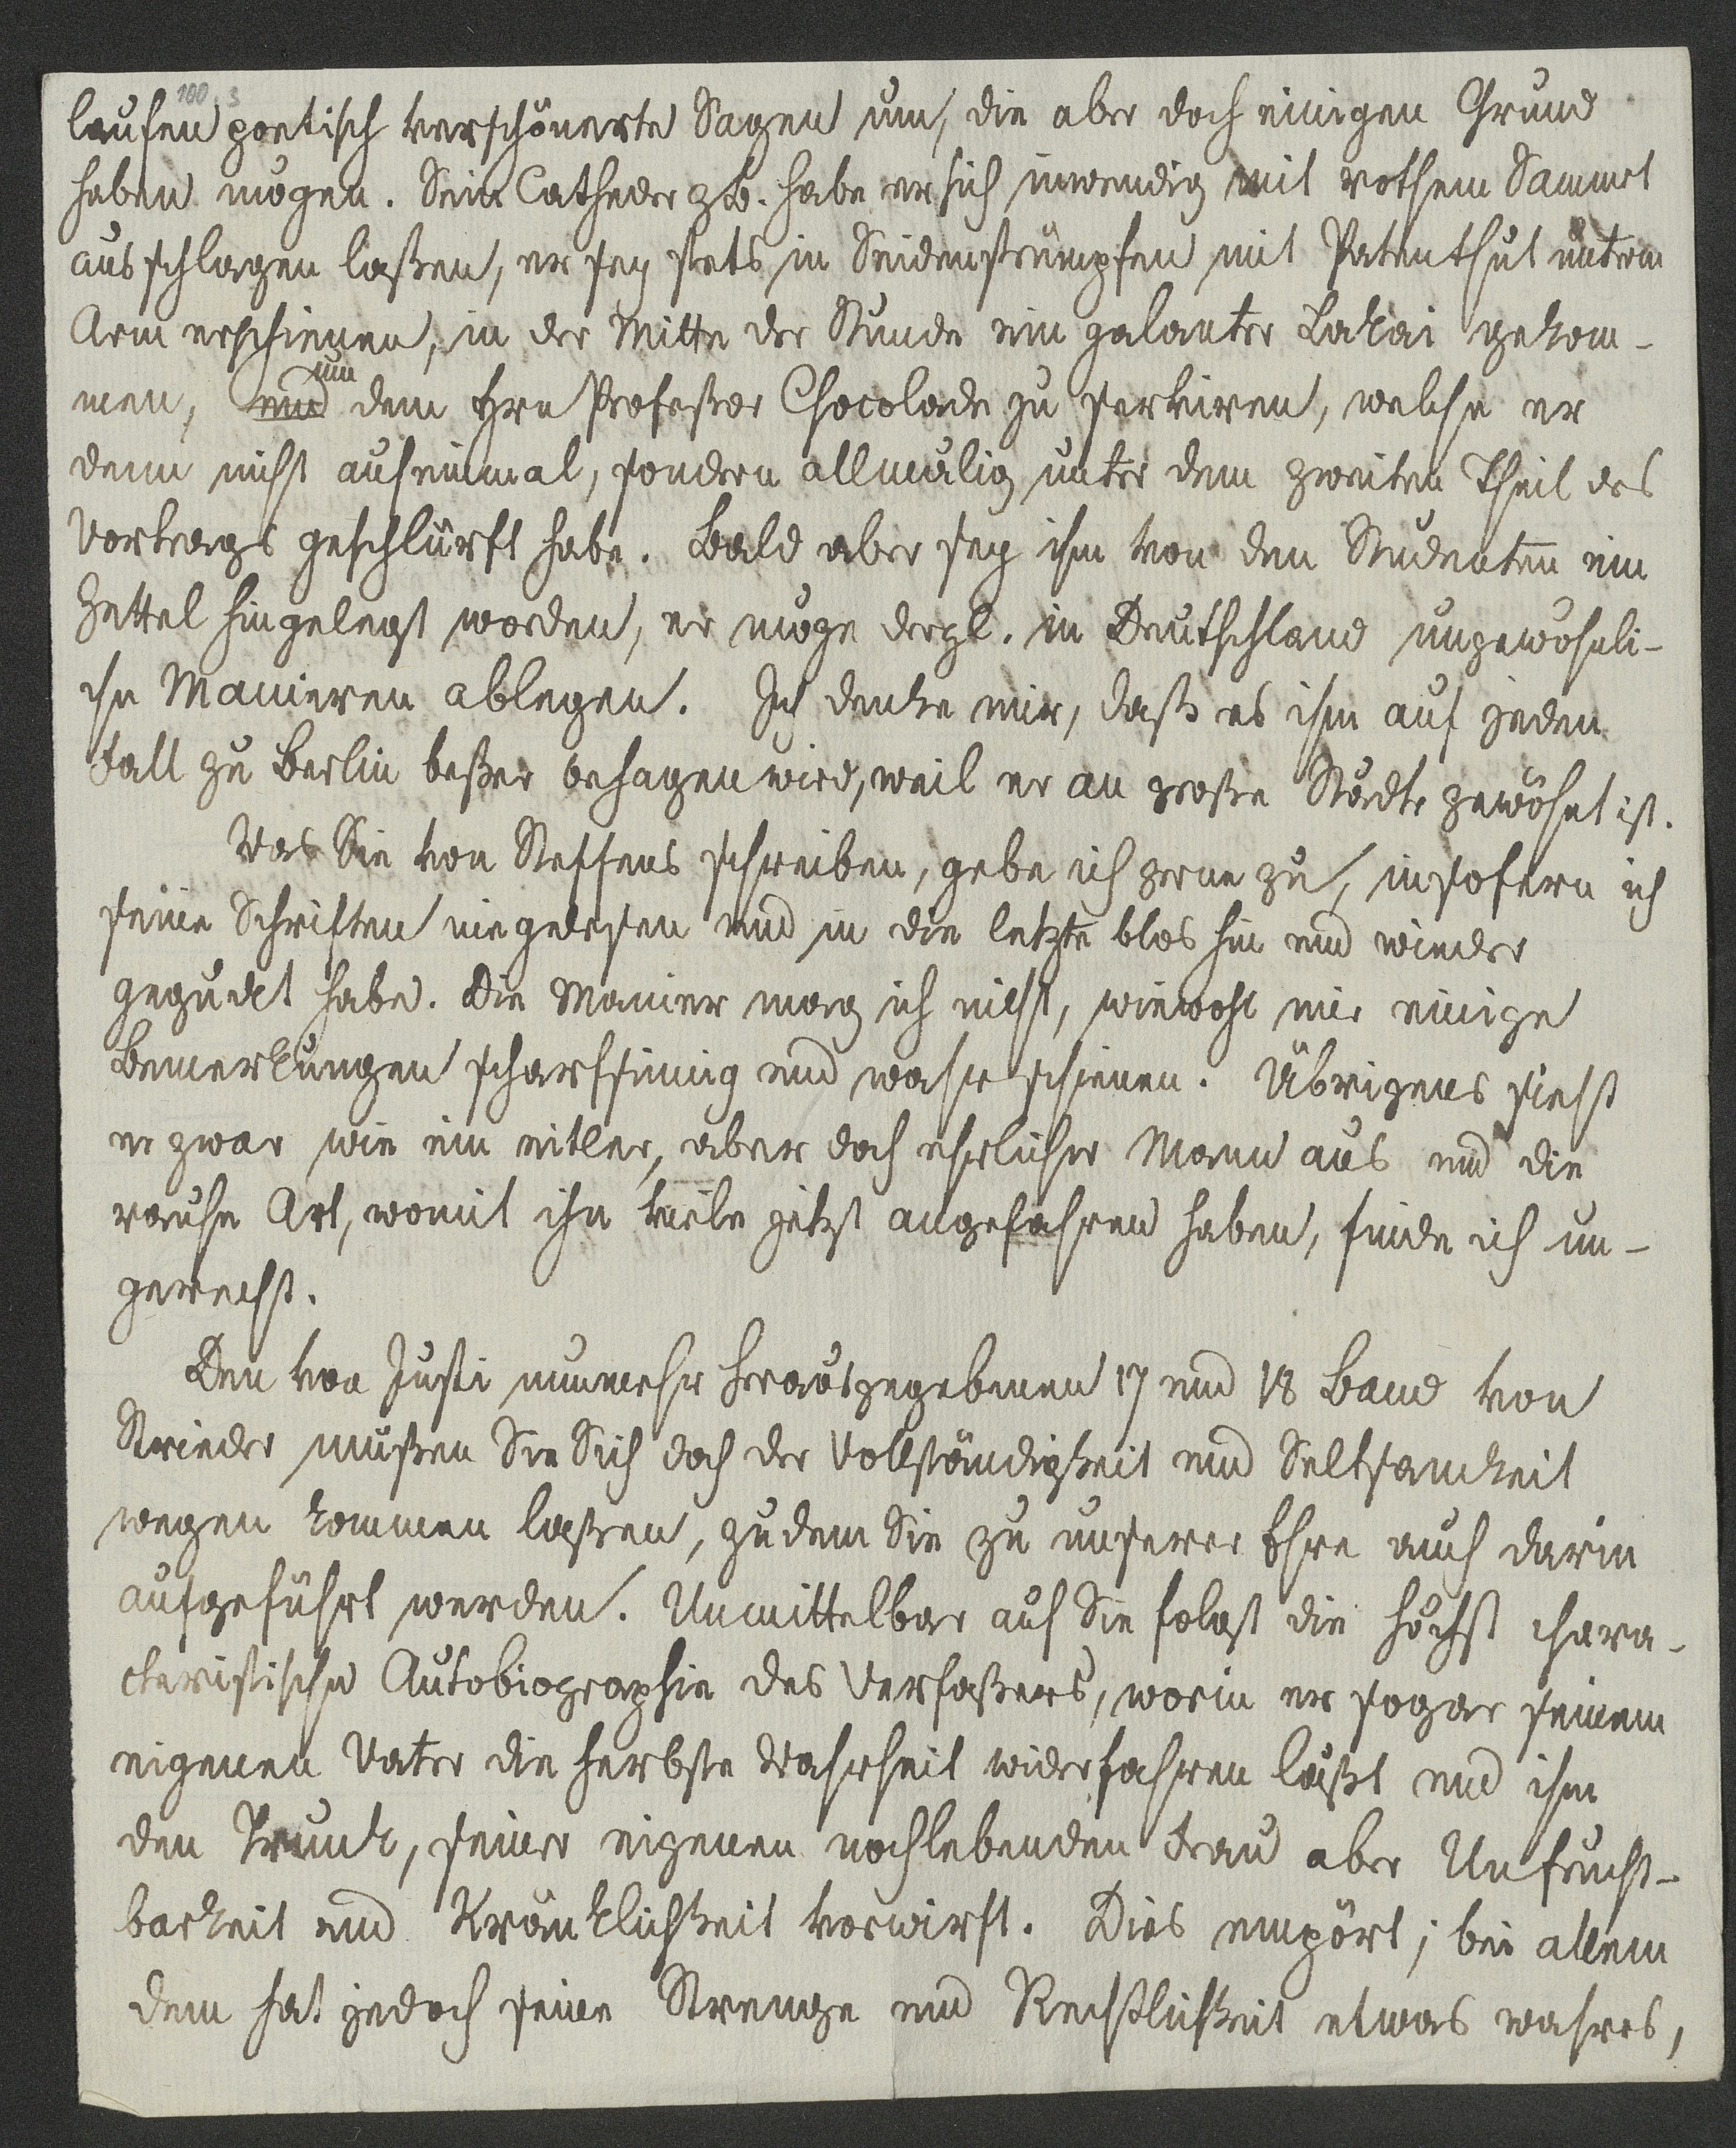 100. 3
laufen poetisch verschönerte Sagen um, die aber doch einigen Grund
haben mögen. Sein Catheder zb. habe er sich inwendig mit rothem Sammet
ausschlagen laßen, er sey stets in Seidenstrümpfen mit Patenthut unterm
Arm erschienen, in der Mitte der Stunde ein galanter Lakai gekom-
men, und um dem Hrn Profeßor Chocolade zu serviren, welche er
denn nicht aufeinmal, sondern allmälig unter dem zweiten Theil des
Vortrags geschlürft habe. Bald aber sey ihm von den Studenten ein
Zettel hingelegt worden, er möge dergl. in Deutschland ungewöhnli-
che Manieren ablegen. Ich denke mir, daß es ihm auf jeden
Fall zu Berlin beßer behagen wird, weil er an große Städte gewöhnt ist.
Was Sie von Steffens schreiben, gebe ich gerne zu, insofern ich
seine Schriften nie gelesen und in die letzte blos hin und wieder
geguckt habe. Die Manier mag ich nicht, wiewohl mir einige
Bemerkungen scharfsinnig und wahr schienen. Übrigens sieht
er zwar wie ein eitler, aber doch ehrlicher Mann aus und die
rauhe Art, womit ihn viele jetzt angefahren haben, finde ich un-
gerecht.
Den von Justi nunmehr herausgegebenen 17 und 18 Band von
Strieder müßen Sie Sich doch der Vollständigkeit und Seltsamkeit
wegen kommen laßen, zudem Sie zu unserer Ehre auch darin
aufgeführt werden. Unmittelbar auf Sie folgt die höchst chara-
cteristische Autobiographie des Verfaßers, worin er sogar seinem
eigenen Vater die herbste Wahrheit widerfahren läßt und ihm
den Trunk, seiner eigenen nochlebenden Frau aber Unfrucht-
barkeit und Kränklichkeit vorwirft. Dies empört; bei allem
dem hat jedoch seine Strenge und Rechtlichkeit etwas wahres,